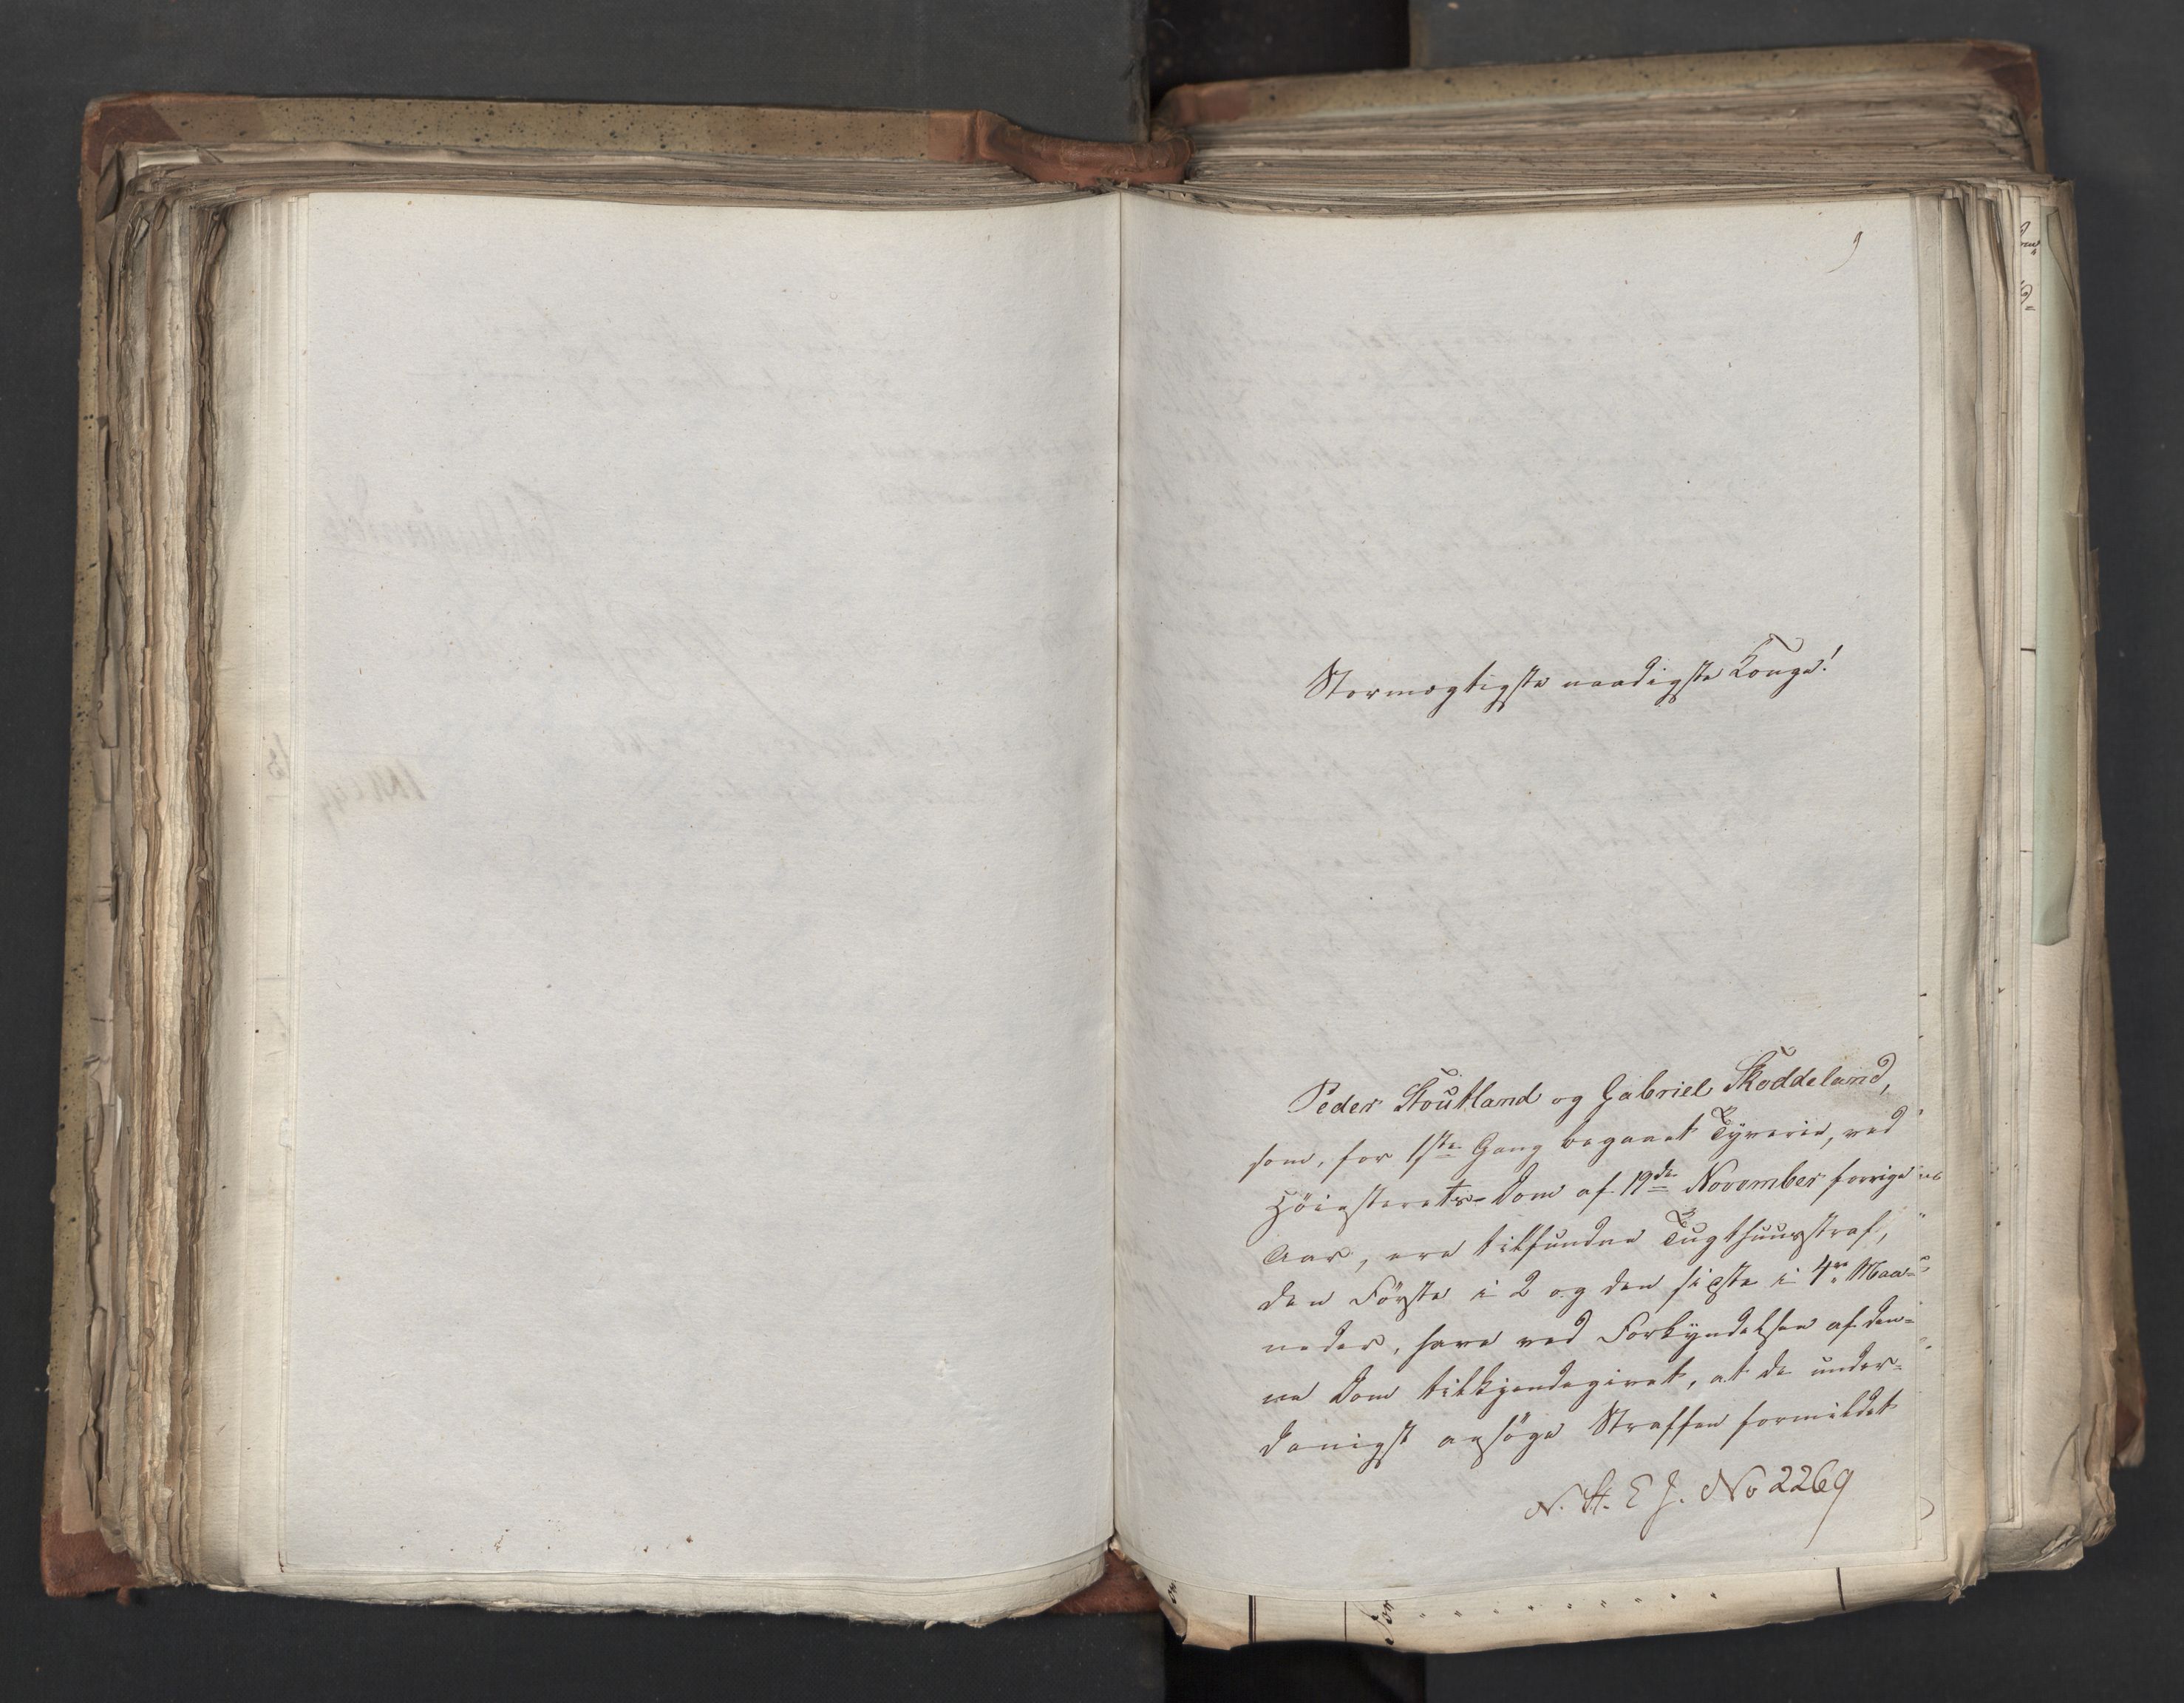 9
Stormægtigste naadigste Konge!
Peder Stoutland og Gabriel Skoddeland,
som, for 1ste Gang begaaet Tyverie, ved
Höiesterets-Dom af 19de November forrige
Aar, ere tilfundne Tugthuusstraf,
den Förste i 2 og den sidste i 4re Maa-
neder, have ved Forkyndelsen af den-
ne Dom tilkjendegivet, at de under-
danigst ansöge Straffen formildet
N. St. E J. No 2269